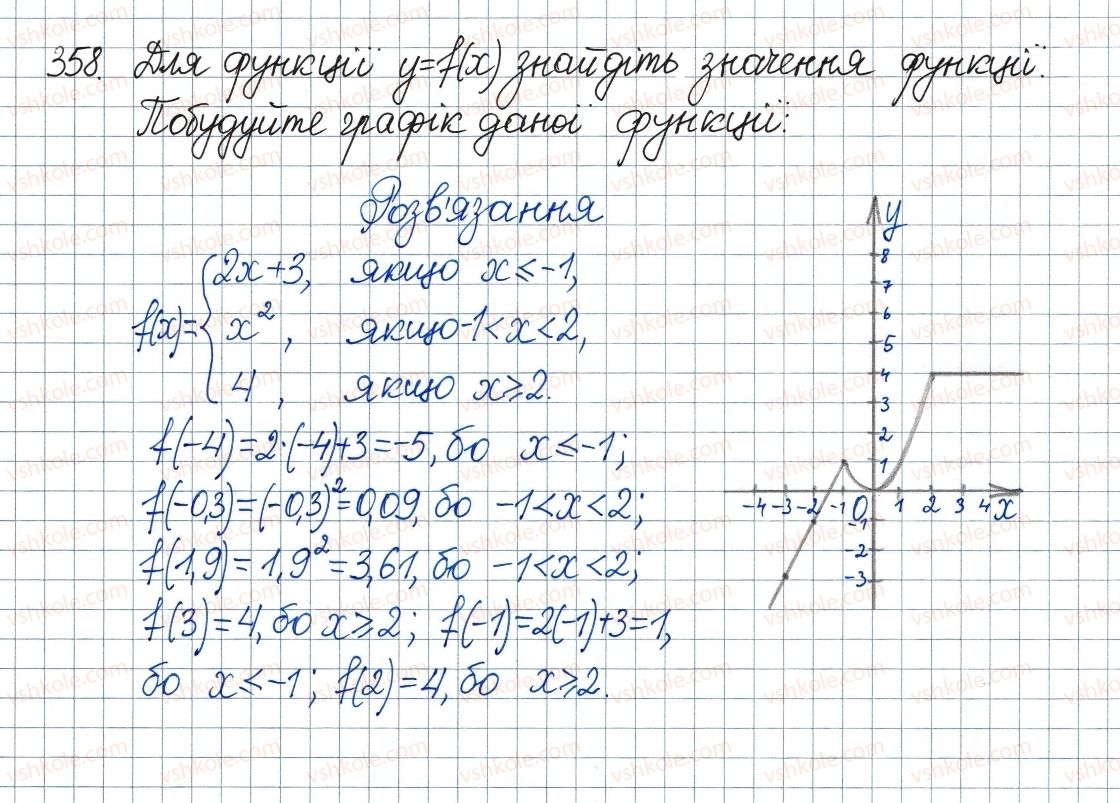 358. Для функції y=f(x) знайдіть значення функції.
Побудуйте графік даної функції:
Розв'язання
f(x)= { 2x+3, якщо x≤-1,
x², якщо -1<x<2,
4, якщо x≥2.
f(-4)=2·(-4)+3=-5, бо x≤-1;
f(-0,3)=(-0,3)²=0,09, бо -1<x<2;
f(1,9)=1,9²=3,61, бо -1<x<2;
f(3)=4, бо x≥2; f(-1)=2(-1)+3=1,
бо x≤-1; f(2)=4, бо x≥2.
y
8
7
6
5
4
3
2
1
-4 -3 -2 -1 0 1 2 3 4 x
-1
-2
-3
vshkole.com